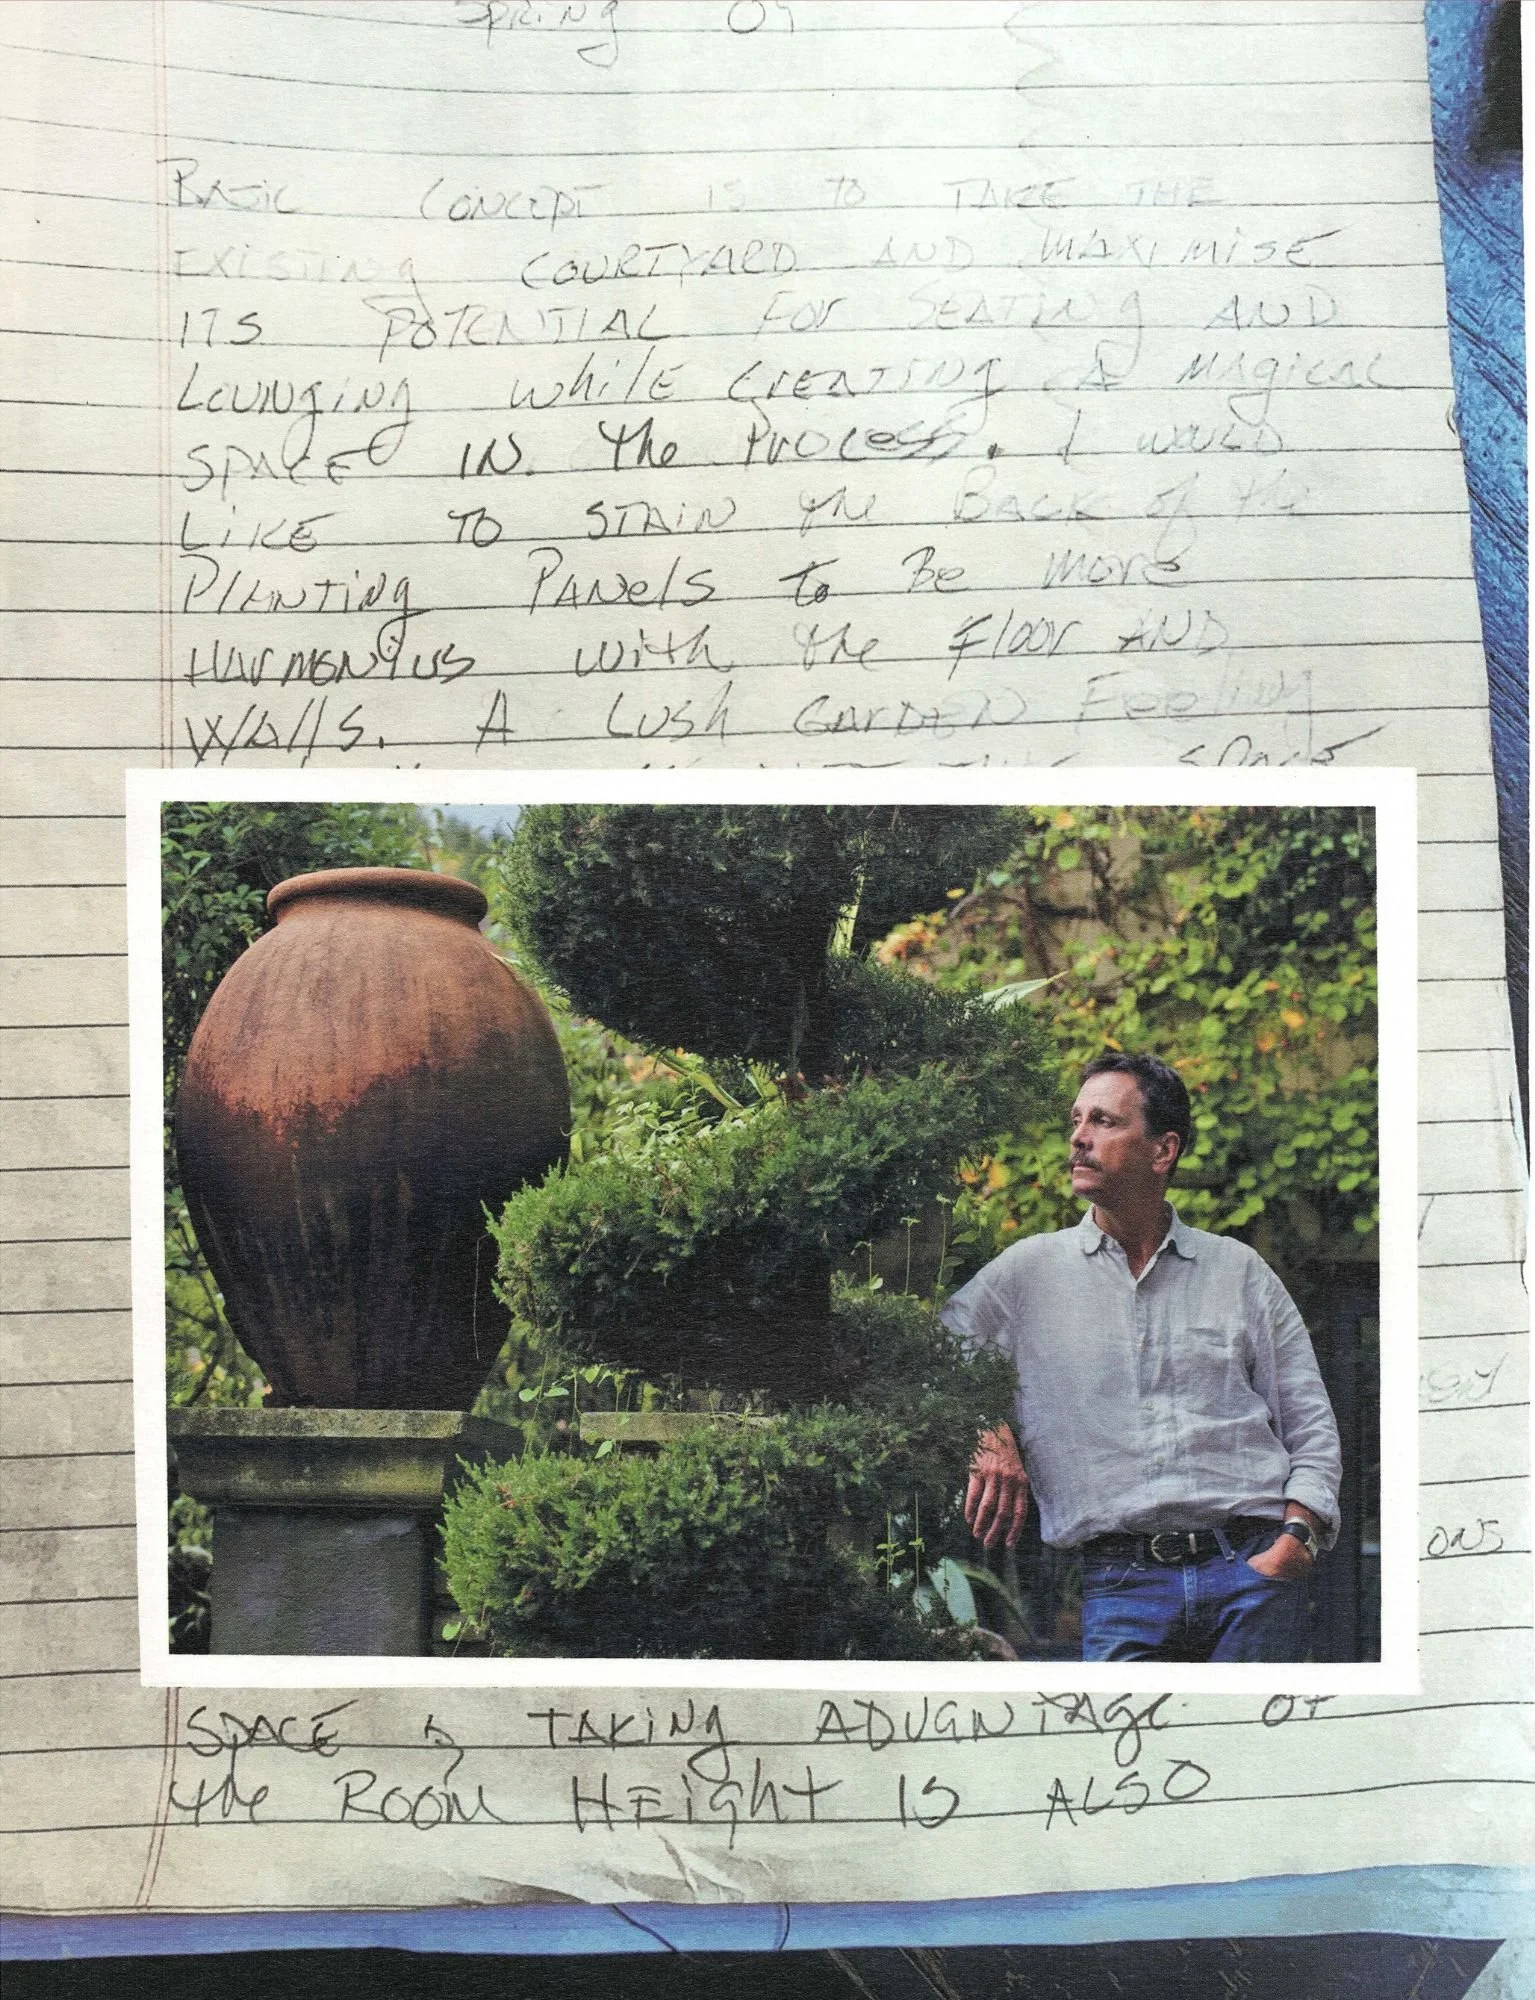 Spring 04
BASIC CONCEPT IS TO TAKE THE
EXISTING COURTYARD AND MAXIMISE
ITS POTENTIAL FOR SEATING AND
LOUNGING while CREATING A MAGICAL
SPACE IN the PROCESS. I WOULD
LIKE TO STAIN the BACK of the
PlANTiNg PANels to Be more
HARMONIUS with the Floor AND
WAllS. A LUSh GARDEN Feeling
SPACE
ONS
SPACE & TAKING ADVANTAGE OF
the ROOM HEIGhT IS ALSO